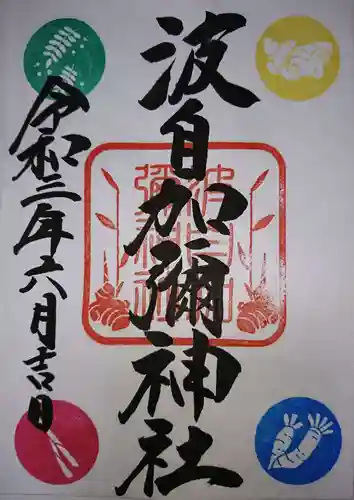 波自加彌神社
令和三年六月吉日
波自加
彌神社